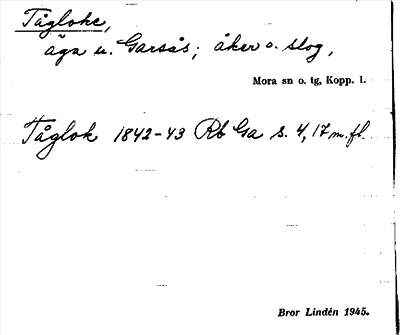 Tågloke,
äga u. Garsås; åker o. slog,
Mora sn o. tg, Kopp. l.
Tåglok 1842-43 Rb Ga s. 4, 17 m.fl.
Bror Lindén 1945.